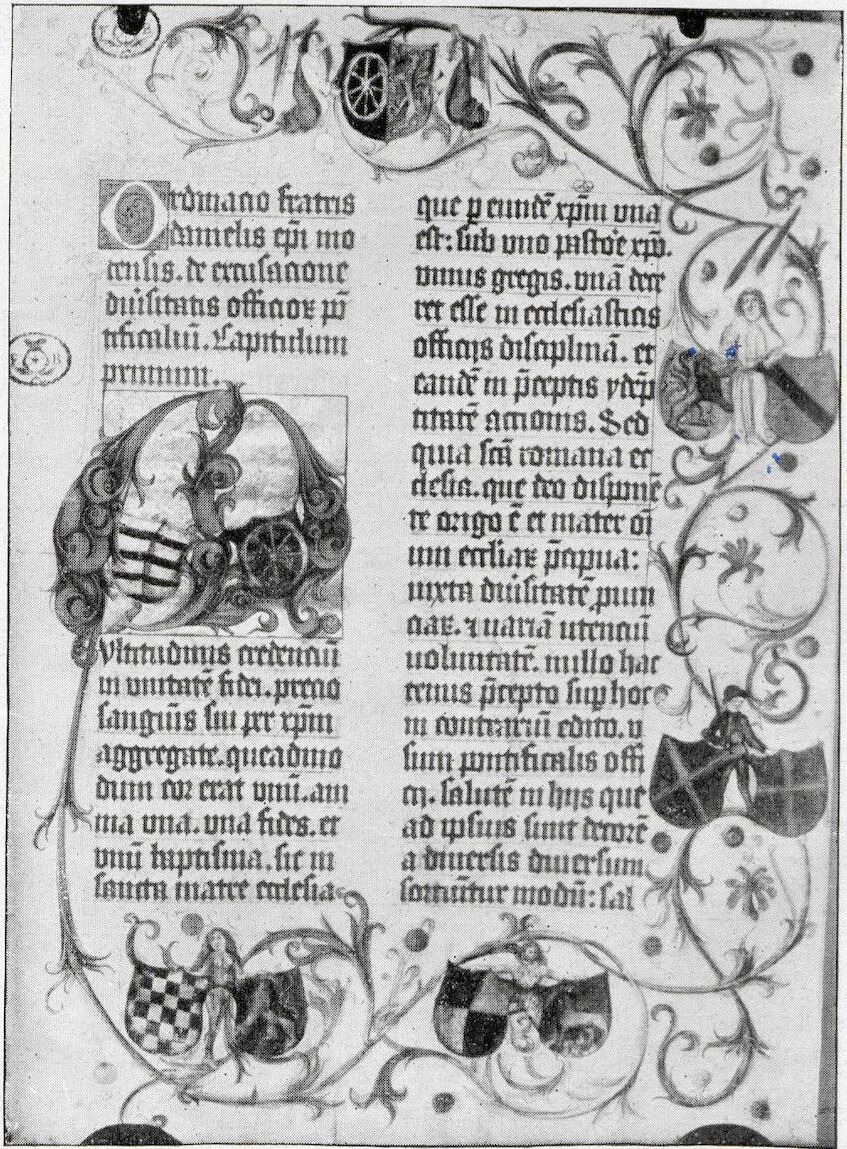 Ordinacio fratris
danielis epī mo
tensis. de excusacione
diu̅sitatis officioꝝ pō
tificaliū. Capitulum
primum.
Vltitudinis credenciū
in vnitatē fidei. precio
sanguis sui per xp̅m
aggregate. queadmo
dum cor erat vnū. ani
ma vna. vna fides. et
vnū baptisma. sic in
sancta matre ecclesia
que p̱ eundē xp̅m vna
est: sub vno pasto̅e xp̅o.
vnius gregis. vnā dece
ret esse in ecclesiasticis
officijs disciplinā. et
eandē in p̅ceptis ydēp
titatē actionis. Sed
quia scā romana ec
clesia. que deo disponē
te origo ē et mater oī
um eccliaꝝ p̅cipua:
iuxta diu̅sitatē ꝓuin
ciaꝝ. ⁊ uariā utenciū
voluntatē. nullo hac
tenus p̅cepto suꝑ hoc
in contrariū edito. v
sum pontificalis offi
cij. salutē in hijs que
ad ipsius sunt decorē
a diuersis diuersum
sortiūtur modū: sal